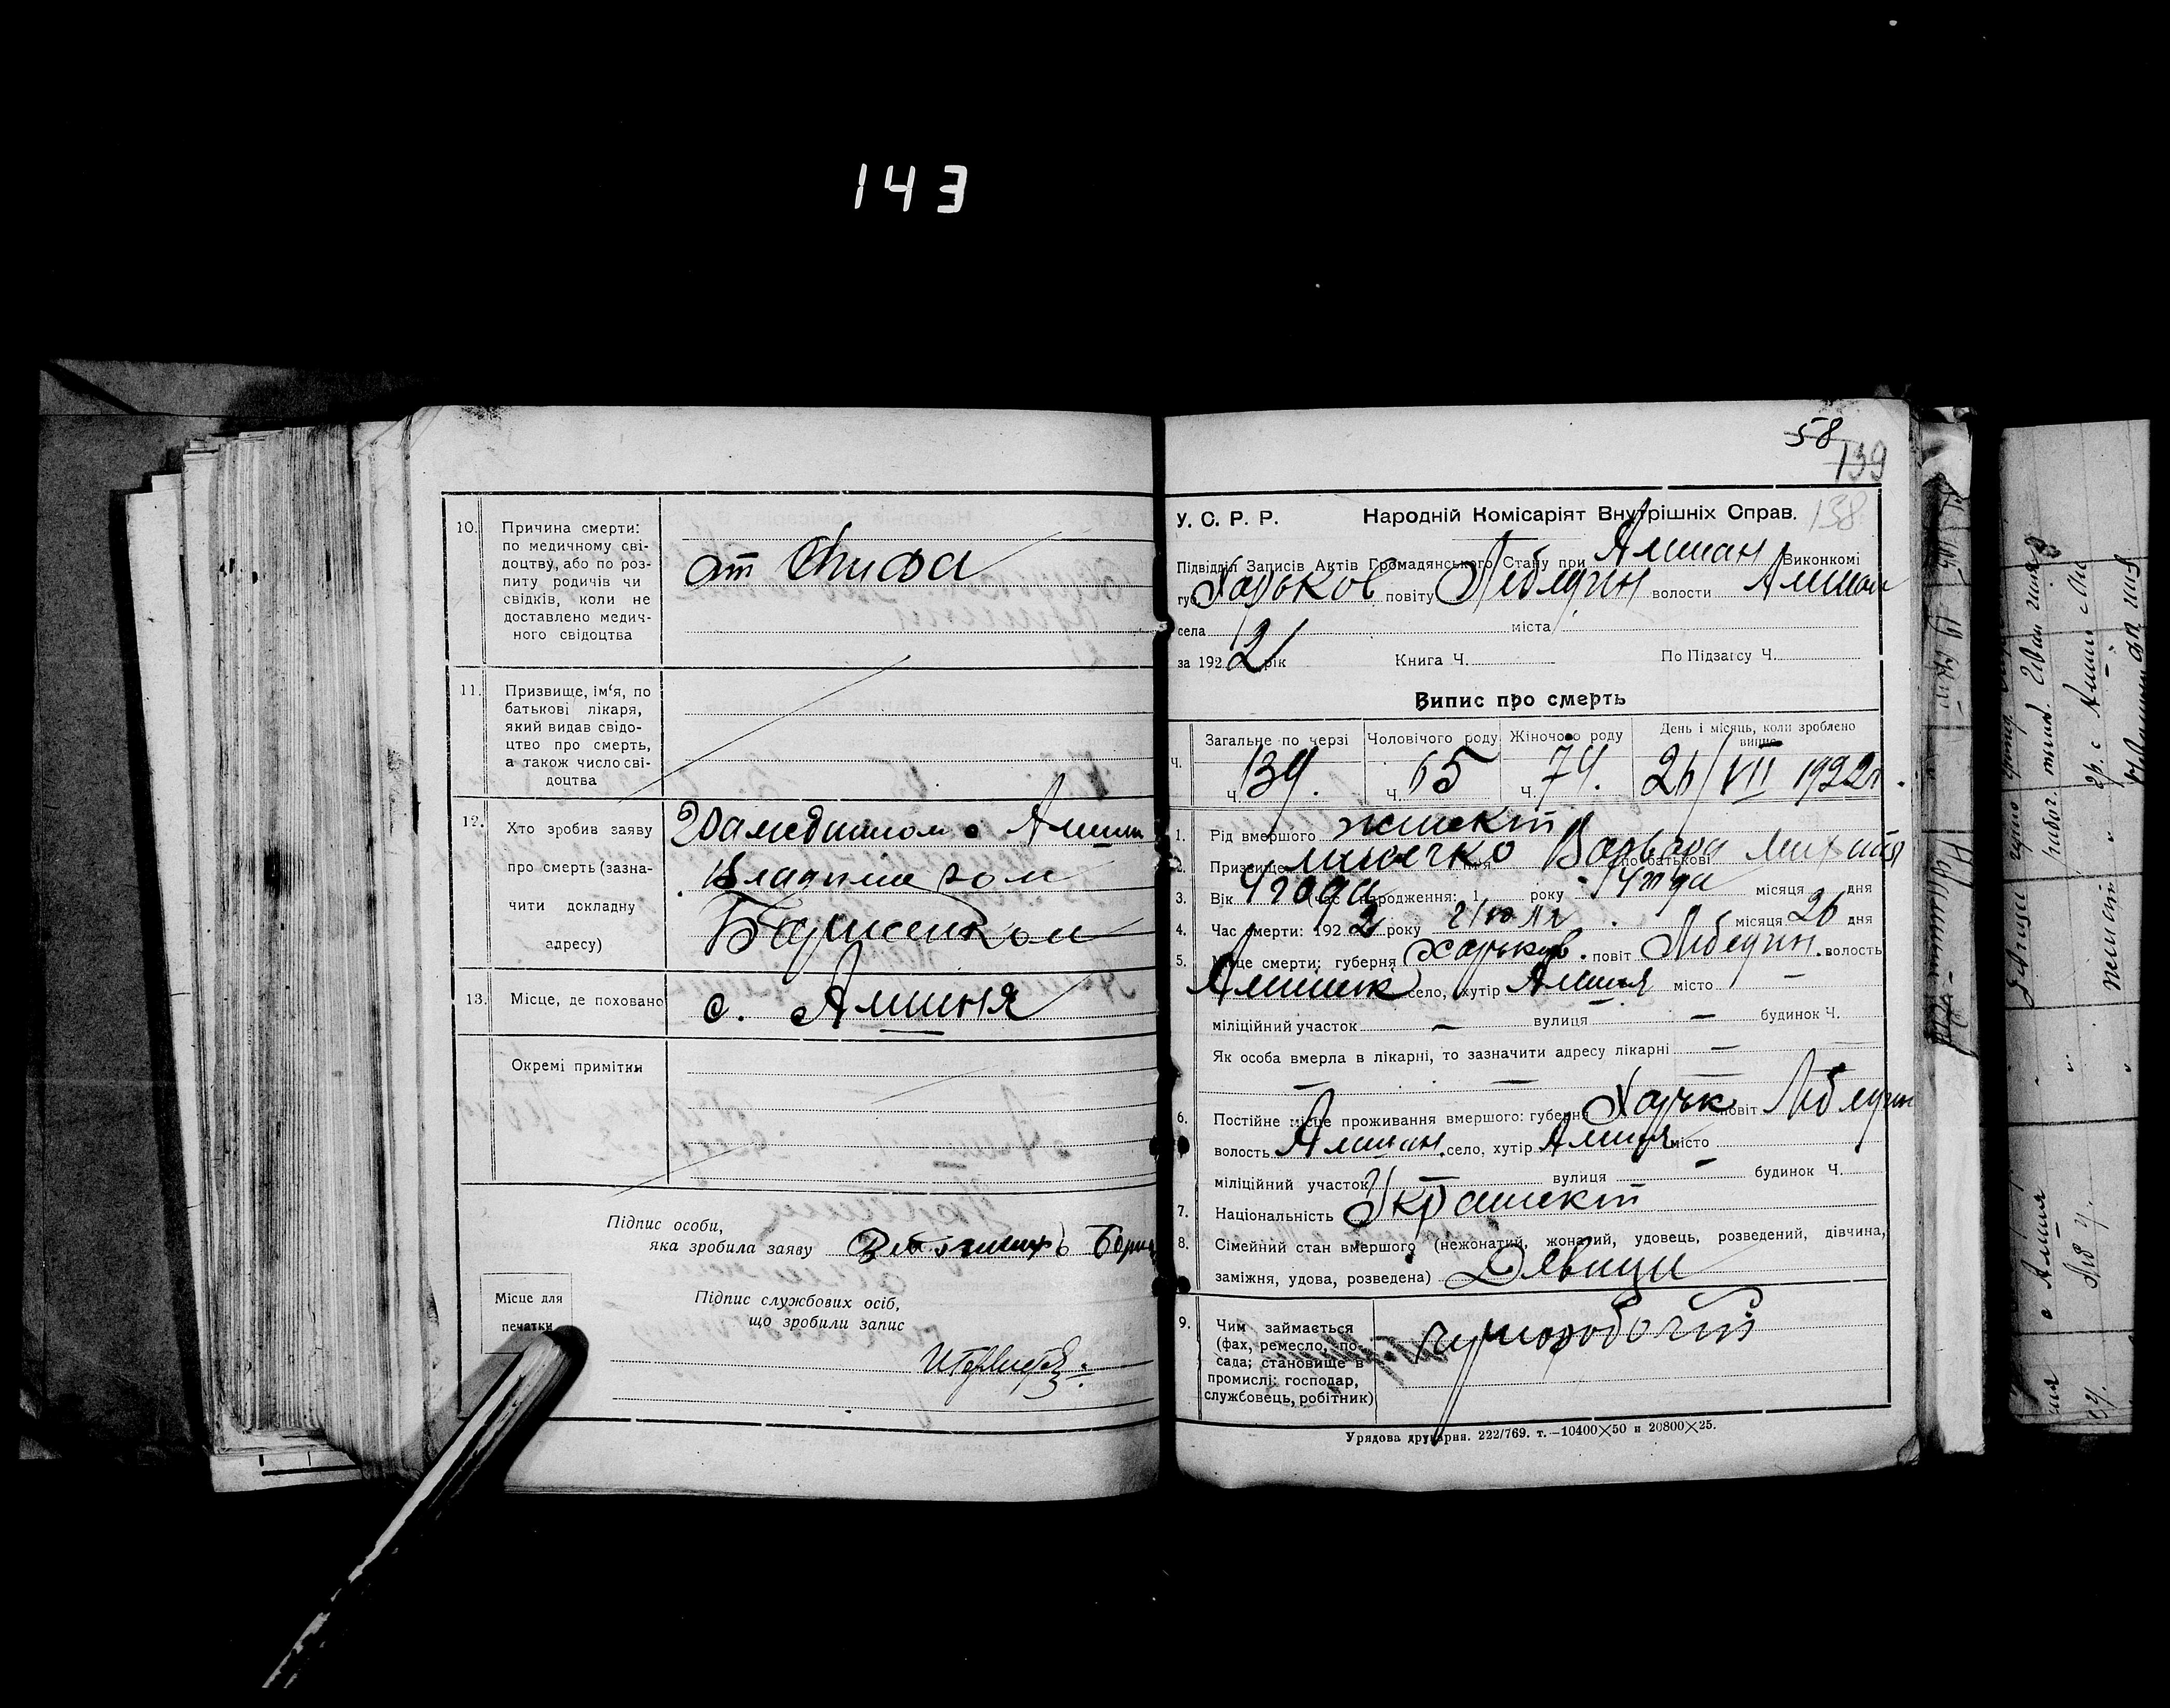 143
10. Причина смерти:
по медичному сві-
доцтву, або по роз-
питу родичів чи
свідків, коли не
доставлено медич-
ного свідоцтва
от тифа
11. Призвище, ім‘я, по
батькові лікаря,
який видав свідо-
цтво про смерть,
а також число сві-
доцтва
12. Хто зробив заяву
про смерть (зазна-
чити докладну
адресу)
Владимиром
13. Місце, де поховано
с. Алишня
Окремі примітки
Підпис особи,
яка зробила заяву
Місце для
печатки
Підпис службових осіб,
що зробили запис
58
139
138
У. С. Р. Р. Народній Комісаріят Внутрішніх Справ.
Підвідділ Записів Актів Громадянського Стану при Алишан Виконкомі
губ. Харьков повіту Лебедин волости Алишан
села міста
за 192 2 рік Книга Ч. По Підзагсу Ч.
Випис про смерть
Загальне по черзі Чоловічого роду Жіночого роду День і місяць, коли зроблено випис
Ч. Ч. 139. Ч. 65 Ч. 74. 26/VII 1922 г.
1. Рід вмершого женский
2. Призвище ім‘я Варвара по батькові Михайл
3. Вік 4 года (час народження: 1 року місяця дня
4. Час смерти: 192 2 року июля місяця 26 дня
5. Місце смерти: губерня Харьков. повіт Лебедин. волость
Алишан село, хутір Алишня місто —
міліційний участок — вулиця — будинок Ч.
Як особа вмерла в лікарні, то зазначити адресу лікарні —
— —
6. Постійне місце проживання вмершого: губерня Харьк повіт Лебедин
волость Алишан. село, хутір Алишня місто
міліційний участок — вулиця — будинок Ч.
7. Національність Украинский
8. Сімейний стан вмершого (нежонатий, жонатий, удовець, розведений, дівчина,
заміжня, удова, розведена) Девица
9. Чим займається
(фах, ремесло, по-
сада; становище в
промислі: господар,
службовець, робітник)
Урядова друкарня. 222/769. т.—10400×50 и 20800×25.